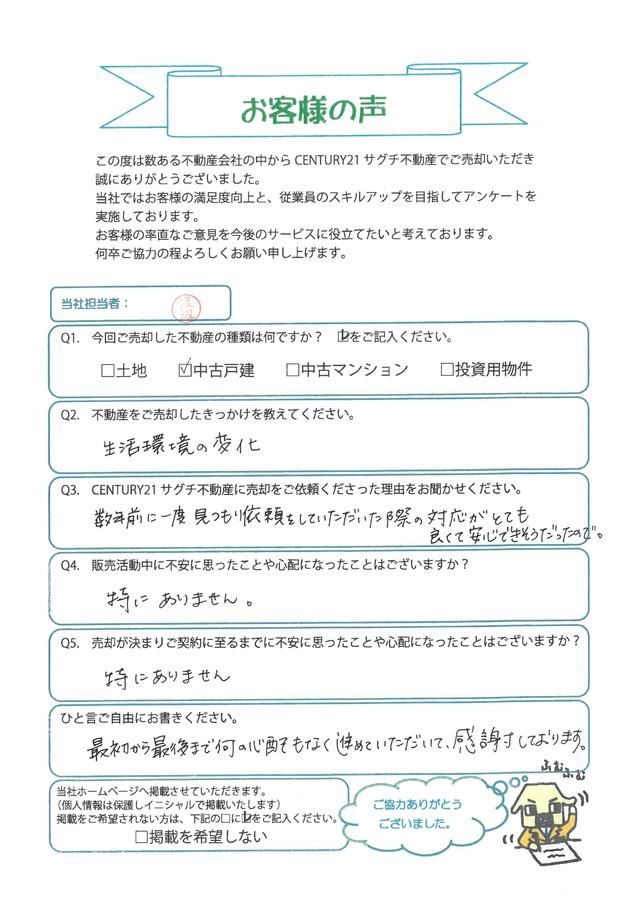 お客様の声
この度は数ある不動産会社の中から CENTURY21 サグチ不動産でご売却いただき
誠にありがとうございました。
当社ではお客様の満足度向上と、従業員のスキルアップを目指してアンケートを
実施しております。
お客様の率直なご意見を今後のサービスに役立てたいと考えております。
何卒ご協力の程よろしくお願い申し上げます。
当社担当者：
Q1. 今回ご売却した不動産の種類は何ですか？ ☑をご記入ください。
□土地 ☑中古戸建 □中古マンション □投資用物件
Q2. 不動産をご売却したきっかけを教えてください。
生活環境の変化
Q3. CENTURY21 サグチ不動産に売却をご依頼くださった理由をお聞かせください。
数年前に一度見つもり依頼をしていただいた際の対応がとても
良くて安心できそうだったので。
Q4. 販売活動中に不安に思ったことや心配になったことはございますか？
特にありません。
Q5. 売却が決まりご契約に至るまでに不安に思ったことや心配になったことはございますか？
特にありません
ひと言ご自由にお書きください。
最初から最後まで何の心配もなく進めていただいて、感謝しております。
当社ホームページへ掲載させていただきます。
（個人情報は保護しイニシャルで掲載いたします）
掲載をご希望されない方は、下記の□に☑をご記入ください。
□掲載を希望しない
ご協力ありがとう
ございました。
ふむ
ふむ